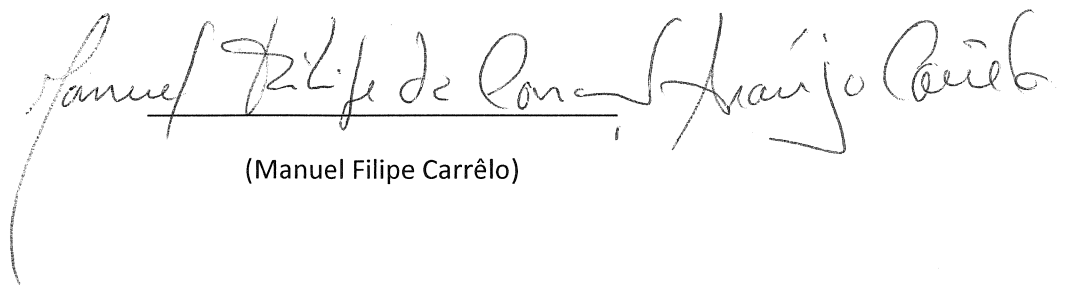 Manuel Filipe de Araújo Carrêlo
(Manuel Filipe Carrêlo)